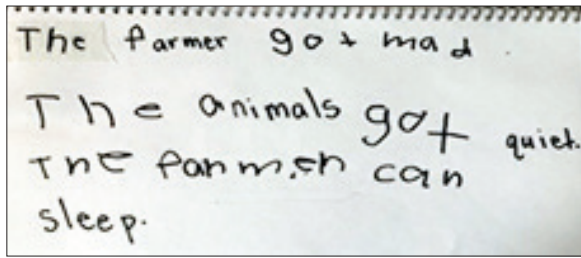 The farmer got mad.
The animals got quiet.
The farmer can
sleep.